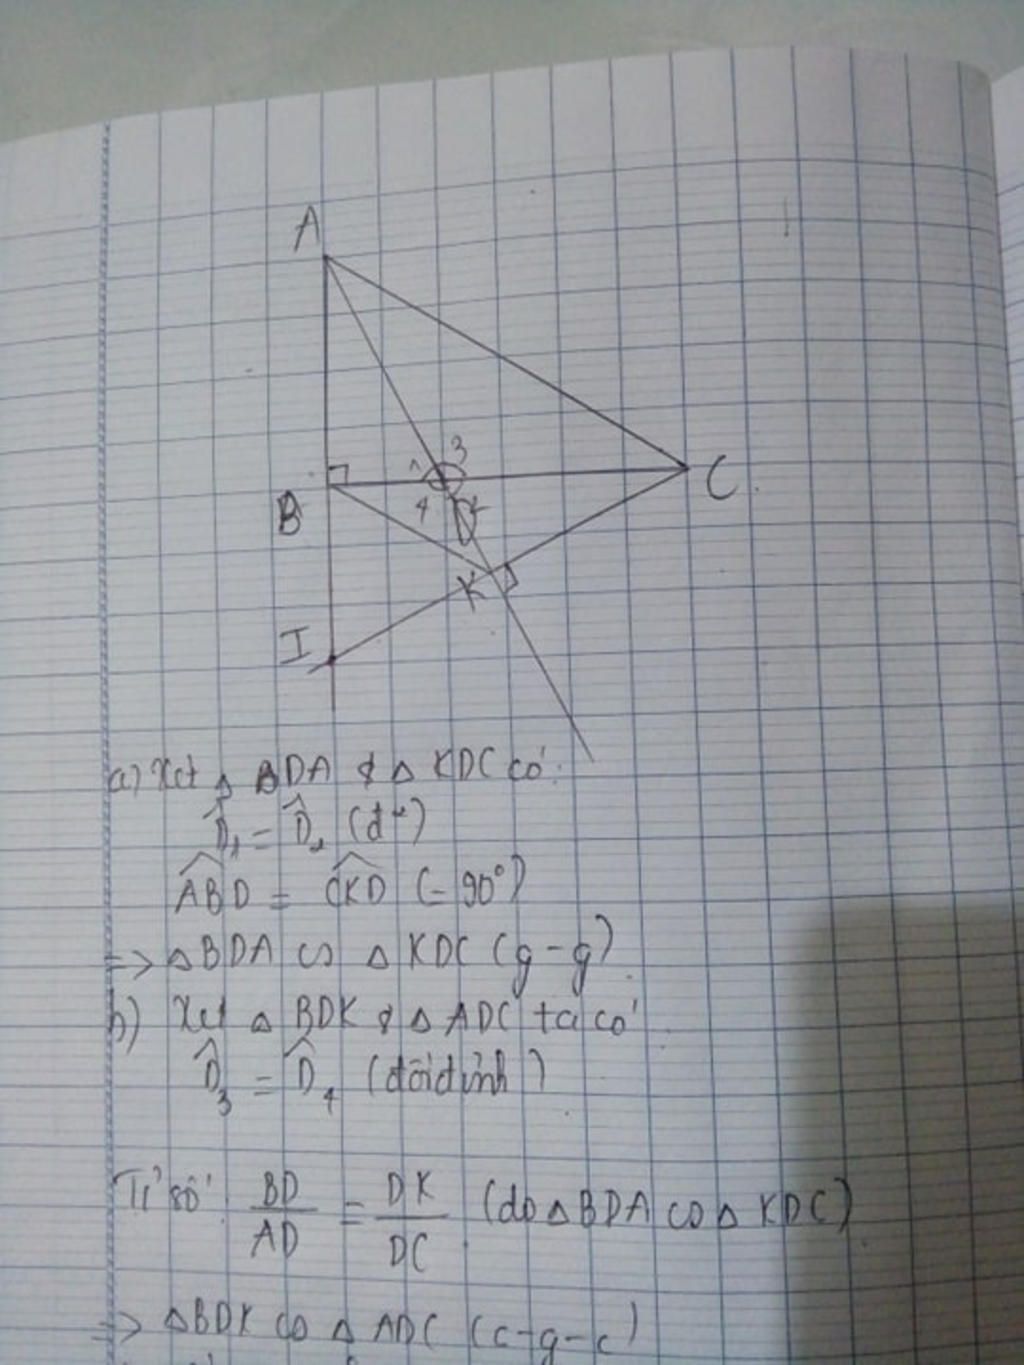 A
3
1
C
B
4
2
D
K
I
a) Xét △ BDA & △ KDC có:
D̂₁ = D̂₂ (đ²)
ABD = CKD (= 90°)
=> △BDA ∽ △ KDC (g-g)
b) Xét △ BDK & △ ADC ta có
D̂₃ = D̂₄ (đối đỉnh)
Tỉ số BD/AD = DK/DC (do △BDA ∽ △ KDC)
=> △BDK ∽ △ ADC (c-g-c)